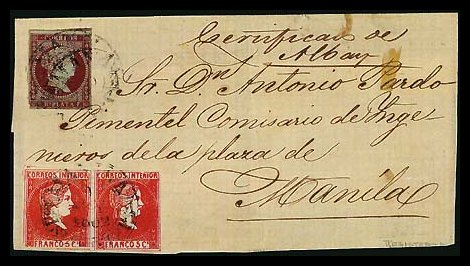 CORREOS
Rl. PLATA F.
Certificad de
Albay
Sr. Dn. Antonio Pardo
Pimentel Comisario de Inge
nieros de la plaza de
Manila
CORREOS INTERIOR
FRANCO 5 Cs.
CORREOS INTERIOR
FRANCO 5 Cs.